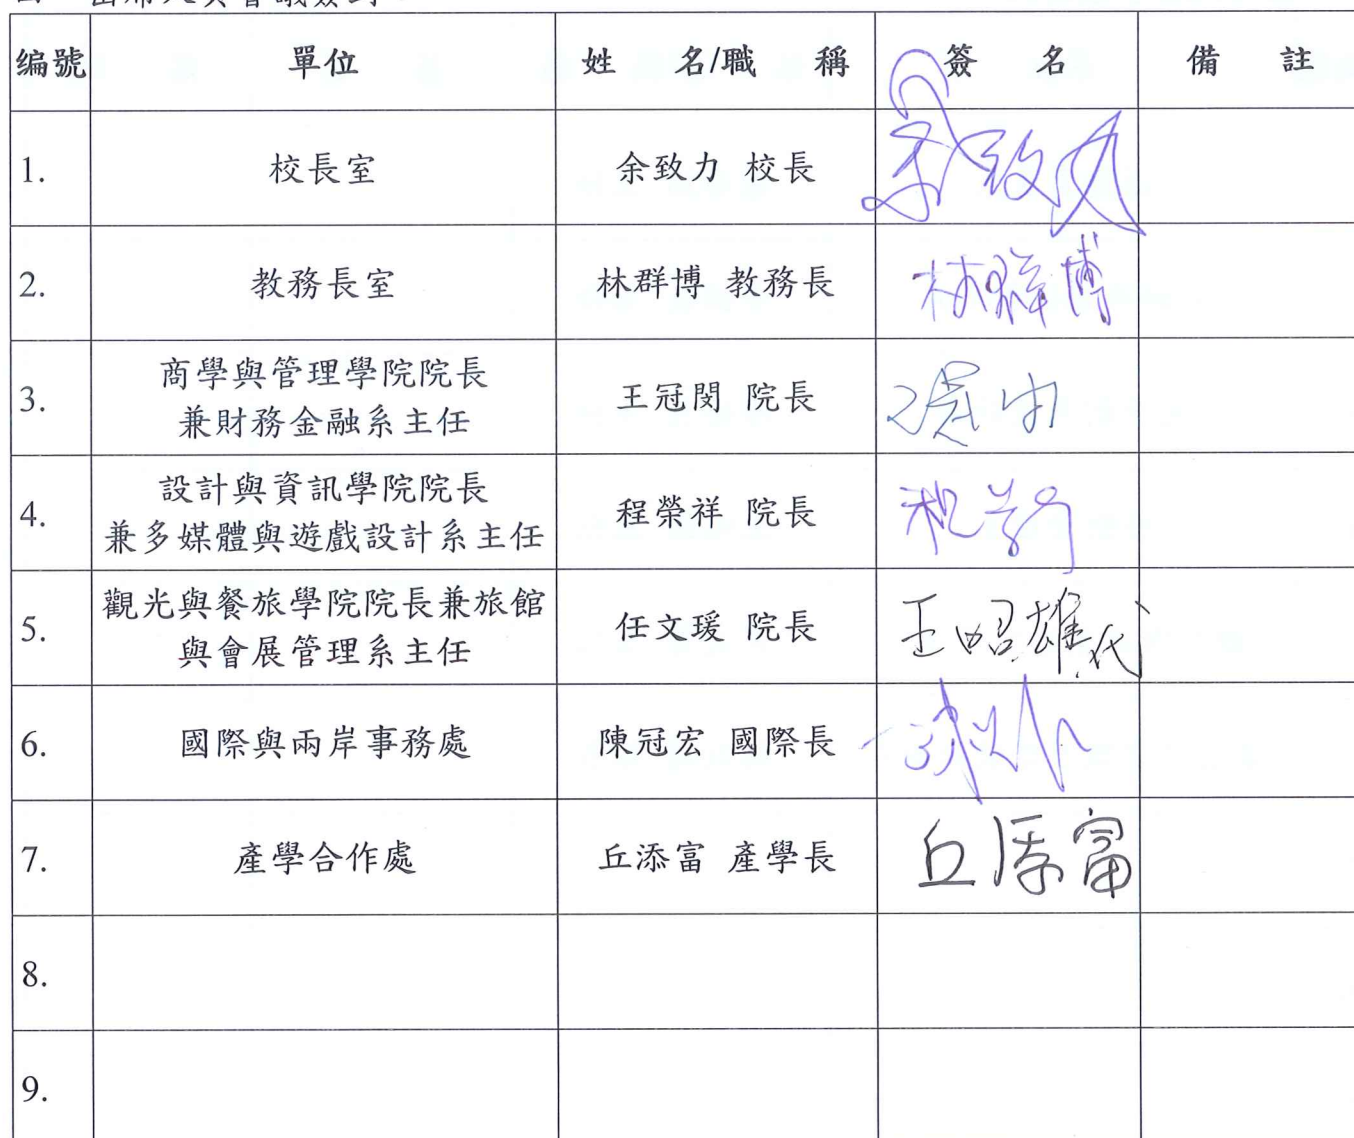 出席人員會議簽到
編號 單位 姓 名/職 稱 簽 名 備 註
1. 校長室 余致力 校長 余致力
2. 教務長室 林群博 教務長 林群博
3. 商學與管理學院院長
兼財務金融系主任 王冠閔 院長
4. 設計與資訊學院院長
兼多媒體與遊戲設計系主任 程榮祥 院長
5. 觀光與餐旅學院院長兼旅館
與會展管理系主任 任文瑗 院長 王昭雄代
6. 國際與兩岸事務處 陳冠宏 國際長
7. 產學合作處 丘添富 產學長 丘添富
8.
9.